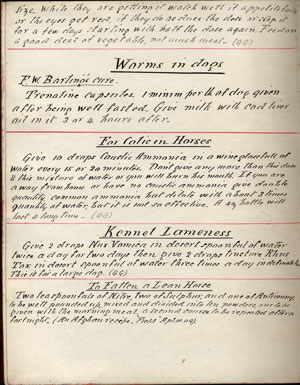 Size. While they are getting it watch well if appetite fails
or the eyes get red, if they do reduce the dose or stop it
for a few days starting with half the dose again. Feed on
a good deal of vegetable, not much meat.
Worms in dogs
F. W. Barling's cure.
capsules. 1 minim per lb of dog given
after being well fasted. Give milk with cod liver
oil in it 3 or 4 hours after.
For Colic in Horses
Give 10 drops Caustic Ammonia in a wineglassfull of
water every 15 or 20 minutes. Dont give any more than this dose
& this mixture of water or you will burn his mouth. If you are
away from home or have no caustic ammonia give double
quantity common ammonia but dilute with about 3 times
quantity of water, but it is not so effective. A bottle will
last a long time.
Kennel Lameness
Give 2 drops Nux Vomica in desert spoonful of water
twice a day for two days then give 2 drops tincture Rhus
Tox in desert spoonful of water three times a day indefinately.
This is for a large dog.
To Fatten a Lean Horse
Two teaspoonfuls of Nitre, two of Sulphur, and one of Antimony,
to be well pounded up, mixed and divided into ten powders, one to be
given with the morning meal, a second course to be repeated after a
fortnight. (An Afghan recipe,